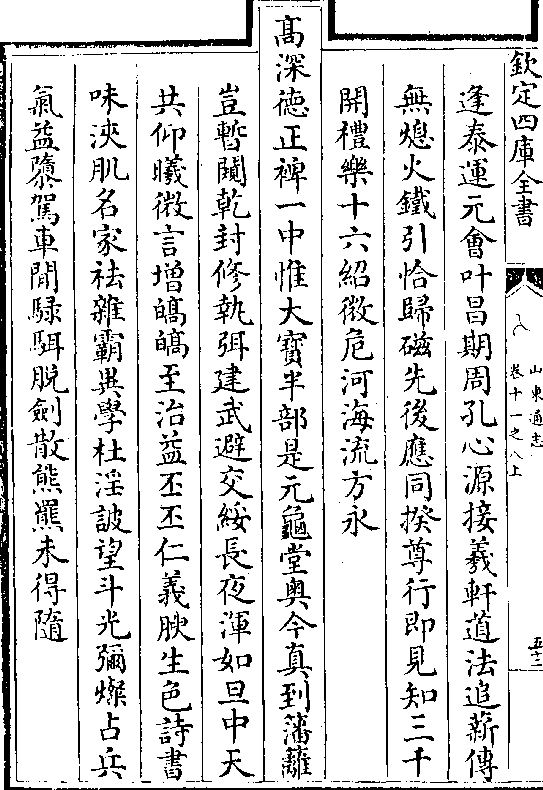 欽定四庫全書
山東通志
卷十一之八上
五十二
逢泰運元會叶昌期周孔心源接羲軒道法追薪傳
無熄火鐵引恰歸磁先後應同揆尊行即見知三千
開禮樂十六紹微危河海流方永
髙深德正裨一中惟大寳半部是元龜堂奥今真到藩籬
豈暫闚乾封修執弭建武避交綏長夜渾如旦中天
共仰曦微言增皜皜至治益丕丕仁義腴生色詩書
味浹肌名家祛雜霸異學杜淫詖望斗光彌燦占兵
氣益隳駕車閒騄駬脱劍散熊羆未得隨